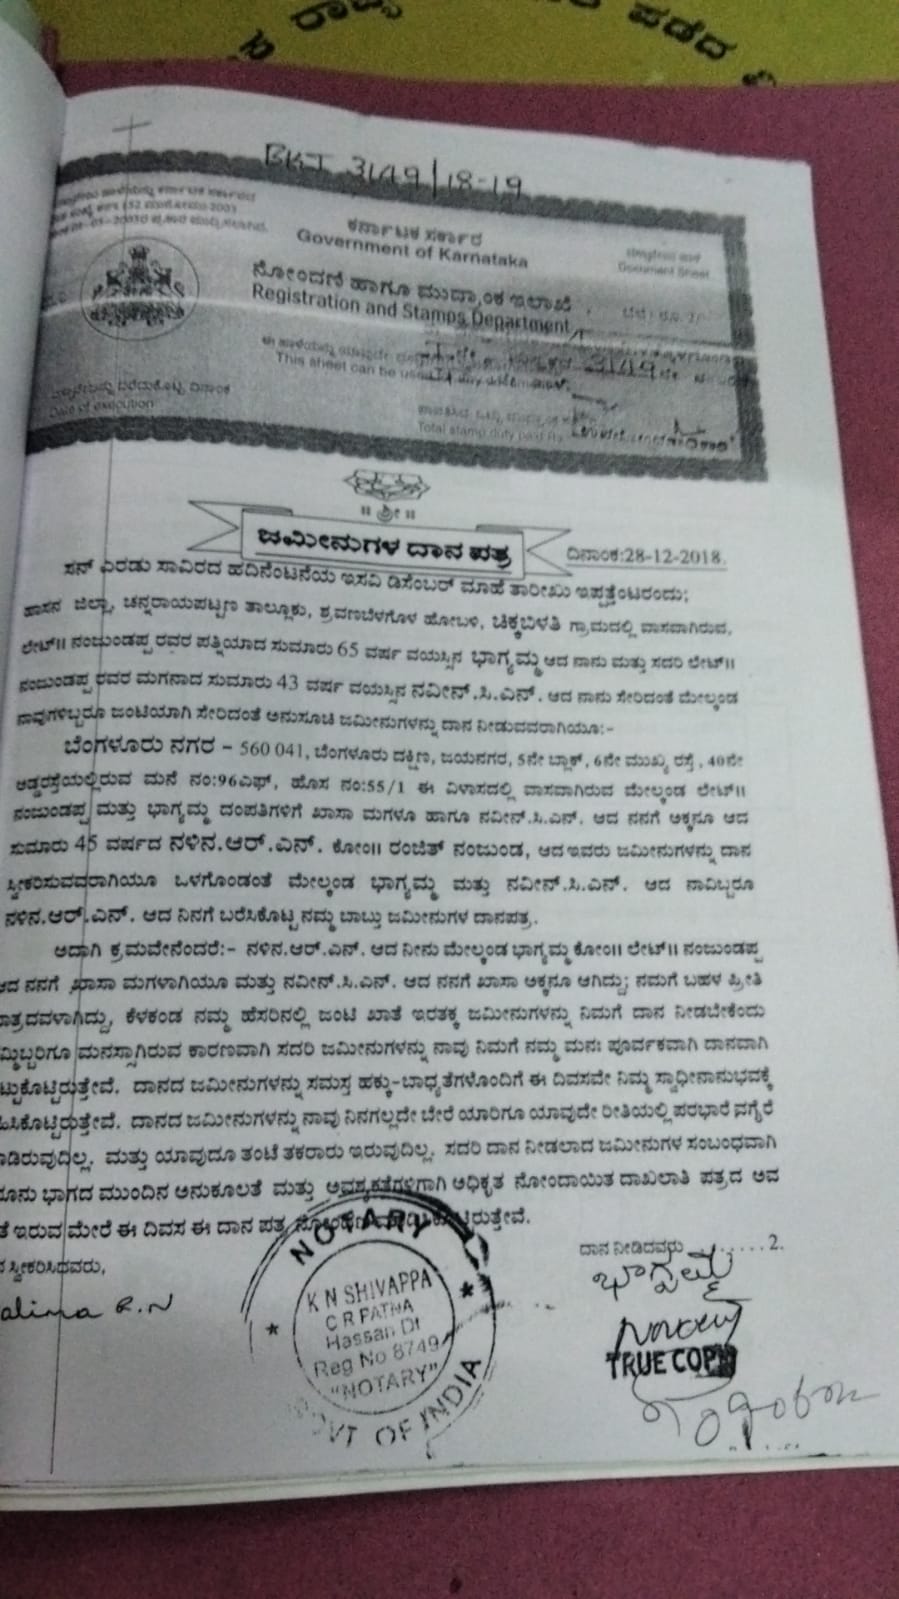 ಪಡೆದ
BKI 3149/18-19
ಕರ್ನಾಟಕ ಸರ್ಕಾರ
Government of Karnataka
Document Sheet
ನೋಂದಣಿ ಹಾಗೂ ಮುದ್ರಾಂಕ ಇಲಾಖೆ
Registration and Stamps Department
3149ನೇ
This sheet can be used for any document
Date of execution
Total stamp duty paid Rs.
॥ ಶ್ರೀ ॥
ಜಮೀನುಗಳ ದಾನ ಪತ್ರ
ದಿನಾಂಕ:28-12-2018.
ಸನ್ ಎರಡು ಸಾವಿರದ ಹದಿನೆಂಟನೆಯ ಇಸವಿ ಡಿಸೆಂಬರ್ ಮಾಹೆ ತಾರೀಖು ಇಪ್ಪತ್ತೆಂಟರಂದು;
ಹಾಸನ ಜಿಲ್ಲಾ, ಚನ್ನರಾಯಪಟ್ಟಣ ತಾಲ್ಲೂಕು, ಶ್ರವಣಬೆಳಗೊಳ ಹೋಬಳಿ, ಚಿಕ್ಕಬಿಳತಿ ಗ್ರಾಮದಲ್ಲಿ ವಾಸವಾಗಿರುವ,
ಲೇಟ್॥ ನಂಜುಂಡಪ್ಪ ರವರ ಪತ್ನಿಯಾದ ಸುಮಾರು 65 ವರ್ಷ ವಯಸ್ಸಿನ ಭಾಗ್ಯಮ್ಮ ಆದ ನಾನು ಮತ್ತು ಸದರಿ ಲೇಟ್॥
ನಂಜುಂಡಪ್ಪ ರವರ ಮಗನಾದ ಸುಮಾರು 43 ವರ್ಷ ವಯಸ್ಸಿನ ನವೀನ್.ಸಿ.ಎನ್. ಆದ ನಾನು ಸೇರಿದಂತೆ ಮೇಲ್ಕಂಡ
ನಾವುಗಳಿಬ್ಬರೂ ಜಂಟಿಯಾಗಿ ಸೇರಿದಂತೆ ಅನುಸೂಚಿ ಜಮೀನುಗಳನ್ನು ದಾನ ನೀಡುವವರಾಗಿಯೂ:-
ಬೆಂಗಳೂರು ನಗರ – 560 041, ಬೆಂಗಳೂರು ದಕ್ಷಿಣ, ಜಯನಗರ, 5ನೇ ಬ್ಲಾಕ್, 6ನೇ ಮುಖ್ಯ ರಸ್ತೆ , 40ನೇ
ಅಡ್ಡರಸ್ತೆಯಲ್ಲಿರುವ ಮನೆ ನಂ:96ಎಫ್, ಹೊಸ ನಂ:55/1 ಈ ವಿಳಾಸದಲ್ಲಿ ವಾಸವಾಗಿರುವ ಮೇಲ್ಕಂಡ ಲೇಟ್॥
ನಂಜುಂಡಪ್ಪ ಮತ್ತು ಭಾಗ್ಯಮ್ಮ ದಂಪತಿಗಳಿಗೆ ಖಾಸಾ ಮಗಳೂ ಹಾಗೂ ನವೀನ್.ಸಿ.ಎನ್. ಆದ ನನಗೆ ಅಕ್ಕನೂ ಆದ
ಸುಮಾರು 45 ವರ್ಷದ ನಳಿನ.ಆರ್.ಎನ್. ಕೋಂ॥ ರಂಜಿತ್ ನಂಜುಂಡ, ಆದ ಇವರು ಜಮೀನುಗಳನ್ನು ದಾನ
ಸ್ವೀಕರಿಸುವವರಾಗಿಯೂ ಒಳಗೊಂಡಂತೆ ಮೇಲ್ಕಂಡ ಭಾಗ್ಯಮ್ಮ ಮತ್ತು ನವೀನ್.ಸಿ.ಎನ್. ಆದ ನಾವಿಬ್ಬರೂ
ನಳಿನ.ಆರ್.ಎನ್. ಆದ ನಿನಗೆ ಬರೆಸಿಕೊಟ್ಟ ನಮ್ಮ ಬಾಬ್ತು ಜಮೀನುಗಳ ದಾನಪತ್ರ.
ಅದಾಗಿ ಕ್ರಮವೇನೆಂದರೆ:- ನಳಿನ.ಆರ್.ಎನ್. ಆದ ನೀನು ಮೇಲ್ಕಂಡ ಭಾಗ್ಯಮ್ಮ ಕೋಂ॥ ಲೇಟ್॥ ನಂಜುಂಡಪ್ಪ
ಆದ ನನಗೆ ಖಾಸಾ ಮಗಳಾಗಿಯೂ ಮತ್ತು ನವೀನ್.ಸಿ.ಎನ್. ಆದ ನನಗೆ ಖಾಸಾ ಅಕ್ಕನೂ ಆಗಿದ್ದು; ನಮಗೆ ಬಹಳ ಪ್ರೀತಿ
ಾತ್ರದವಳಾಗಿದ್ದು, ಕೆಳಕಂಡ ನಮ್ಮ ಹೆಸರಿನಲ್ಲಿ ಜಂಟಿ ಖಾತೆ ಇರತಕ್ಕ ಜಮೀನುಗಳನ್ನು ನಿಮಗೆ ದಾನ ನೀಡಬೇಕೆಂದು
ಮ್ಮಿಬ್ಬರಿಗೂ ಮನಸ್ಸಾಗಿರುವ ಕಾರಣವಾಗಿ ಸದರಿ ಜಮೀನುಗಳನ್ನು ನಾವು ನಿಮಗೆ ನಮ್ಮ ಮನಃ ಪೂರ್ವಕವಾಗಿ ದಾನವಾಗಿ
ಟ್ಟುಕೊಟ್ಟಿರುತ್ತೇವೆ. ದಾನದ ಜಮೀನುಗಳನ್ನು ಸಮಸ್ತ ಹಕ್ಕು-ಬಾಧ್ಯತೆಗಳೊಂದಿಗೆ ಈ ದಿವಸವೇ ನಿಮ್ಮ ಸ್ವಾಧೀನಾನುಭವಕ್ಕೆ
ಹಿಸಿಕೊಟ್ಟಿರುತ್ತೇವೆ. ದಾನದ ಜಮೀನುಗಳನ್ನು ನಾವು ನಿನಗಲ್ಲದೇ ಬೇರೆ ಯಾರಿಗೂ ಯಾವುದೇ ರೀತಿಯಲ್ಲಿ ಪರಭಾರೆ ವಗೈರೆ
ಾಡಿರುವುದಿಲ್ಲ. ಮತ್ತು ಯಾವುದೂ ತಂಟೆ ತಕರಾರು ಇರುವುದಿಲ್ಲ. ಸದರಿ ದಾನ ನೀಡಲಾದ ಜಮೀನುಗಳ ಸಂಬಂಧವಾಗಿ
ೂನು ಭಾಗದ ಮುಂದಿನ ಅನುಕೂಲತೆ ಮತ್ತು ಅವಶ್ಯಕತೆಗಳಿಗಾಗಿ ಅಧಿಕೃತ ನೋಂದಾಯಿತ ದಾಖಲಾತಿ ಪತ್ರದ ಅವ
ತೆ ಇರುವ ಮೇರೆ ಈ ದಿವಸ ಈ ದಾನ ಪತ್ರ
ದಾನ ನೀಡಿದವರು ........2.
ಸ್ವೀಕರಿಸಿದವರು,
ಭಾಗ್ಯಮ್ಮ
alina R.N
NOTARY
K N SHIVAPPA
C R PATNA
Hassan Dt
Reg No 8749
"NOTARY"
GOVT OF INDIA
TRUE COPY